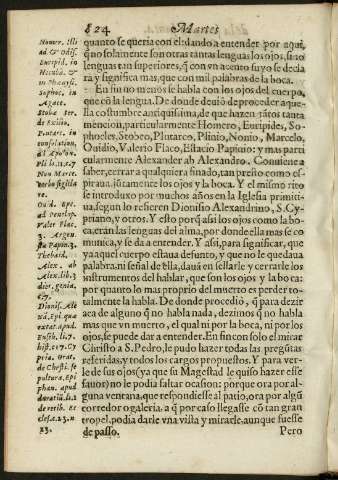 824 Martes
Homer. Illi
ad & odiss.
Euripid. in
Sophoc. in
Stoba ser.
de Exilio.
Plutarc. in
consolation.
Pli. li. 11. c. 7
Non Marc.
Ouid. Epi.
ad Penelop.
Valer Flac.
3. Argon.
sta Papin. 3.
Thebaid.
Alex. ab
Alex. lib. 3
dier. genia.
c. 7.
Dionis. Ale
xatat. apud.
Euseb. li. 7.
hist. c. 17. Cy
pria. Orat.
de Christi. se
pultura. Epi
phan. apud
23.
quanto se queria con el: dando a entender por aqui,
q̃ no solamente son otras tantas lenguas los ojos, sino
lenguas tan superiores, q̃ con vn acento suyo se decla
ra y significa mas, que con mil palabras de la boca.
En fin no menos se habla con los ojos del cuerpo,
que cõ la lengua. De donde deuio de proceder aque-
lla costumbre antiquissima, de que hazen tãtos tanta
mencion, particularmente Homero, Euripides, So-
phocles, Stobeo, Plutarco, Plinio, Nonio, Marcelo,
Ouidio, Valerio Flaco, Estacio Papinio: y mas parti
cularmente Alexander ab Alexandro. Conuiene a
saber, cerrar a qualquiera finado, tan presto como es-
piraua, jũtamente los ojos y la boca. Y el mismo rito
se introduxo por muchos años en la Iglesia primiti-
ua, segun lo refieren Dionisio Alexandrino, S. Cy-
priano, y otros. Y esto porq̃ assi los ojos como la bo-
ca, erán las lenguas del alma, por donde ella mas se co
munica, y se da a entender. Y assi, para significar, que
ya aquel cuerpo estaua defunto, y que no le quedaua
palabra, ni señal de ella, daua en sellarle y cerrarle los
instrumentos del hablar, que son los ojos y la boca:
por quanto lo mas proprio del muerto es perder to-
talmente la habla. De donde procedio, q̃ para dezir
aca de alguno q̃ no habla nada, dezimos q̃ no habla
mas que vn muerto, el qual ni por la boca, ni por los
ojos, se puede dar a entender. En fin con solo el mirar
Christo a S. Pedro, le pudo hazer todas las pregũtas
referidas, y todos los cargos propuestos. Y para ver-
le de sus ojos (ya que su Magestad le quiso hazer esse
fauor) no le podia faltar ocasion: porque ora por al-
guna ventana, que respondiesse al patio, ora por algũ
corredor o galeria. a q̃ por caso llegasse cõ tan gran
tropel, podia darle vna vista y mirarle, aunque fuesse
de passo. Pero